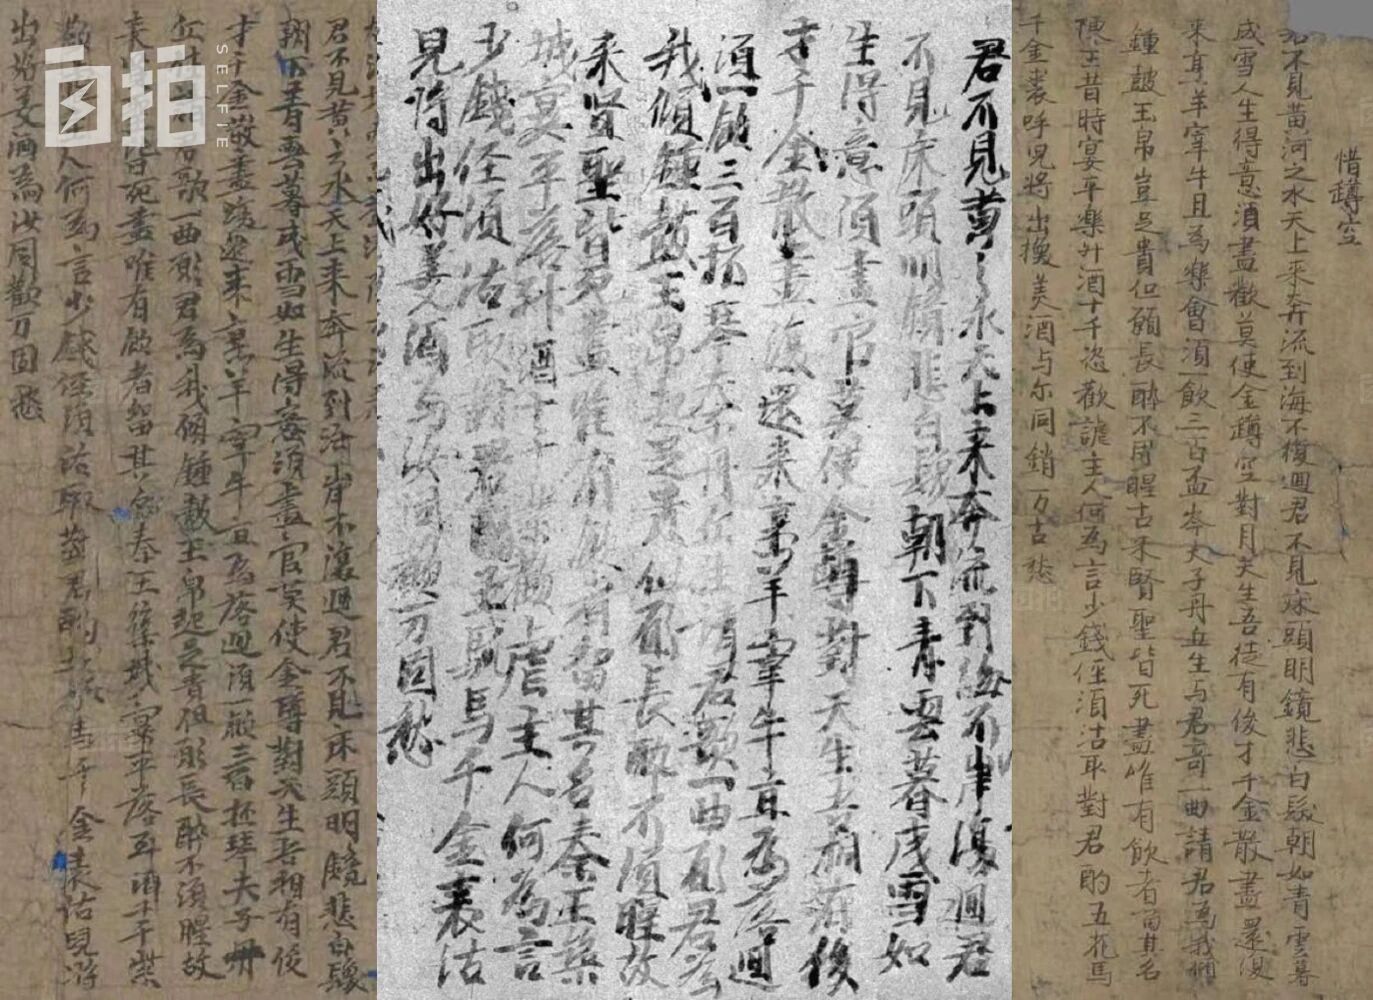 自拍
SELFIE
惜罇空
君不見黄河之水天上来奔流到海不復迴君不見床頭明鏡悲白髮朝如青雲暮
成雪人生得意湏盡歡莫使金罇空對月天生吾徒有俊才千金散盡還復
来烹羊宰牛且為樂會湏一飲三百盃岑夫子丹丘生与君哥一曲請君為我傾
鍾皷玉帛豈足貴但願長醉不用醒古来賢聖皆死盡唯有飲者留其名
陳王昔時宴平樂斗酒十千恣歡謔主人何為言少錢徑湏沽取對君酌五花馬
千金裘呼兒將出換美酒与尔同銷万古愁
君不見黄之水天上来奔流到海不岸復迴君
不見床頭明鏡悲白髮朝下青雲暮成雪如
生得意須盡官莫使金尊對天生吾有俊
才千金散盡復還来烹羊宰牛亘為落迴
須一飲三百杯琴夫子丹丘生請君歌一曲願君為
我傾鍾鼓玉帛起足貴但願長醉不須醒故
来賢聖皆死盡唯有飲者留其名秦王築
城冥平落斗酒十千紫歡虐主人何為言
少錢徑須沽取對君酌馬千金裘沽
兒將出好美酒為汝同歡万固愁
君不見黄之水天上来奔流到海岸不復迴君不見床頭明鏡悲白髮
朝下青雲暮成雪如生得意須盡官莫使金罇對天生吾相有俊
才千金散盡復還来烹羊宰牛亘為落迴須一飲三百杯琴夫子丹
丘生請君歌一曲願君為我傾鍾鼓玉帛起足貴但願長醉不須醒故
来賢聖皆死盡唯有飲者留其名秦王築城冥平落斗酒十千紫
歡主人何為言少錢徑須沽取對君酌馬千金裘沽兒將
出好美酒為汝同歡万固愁